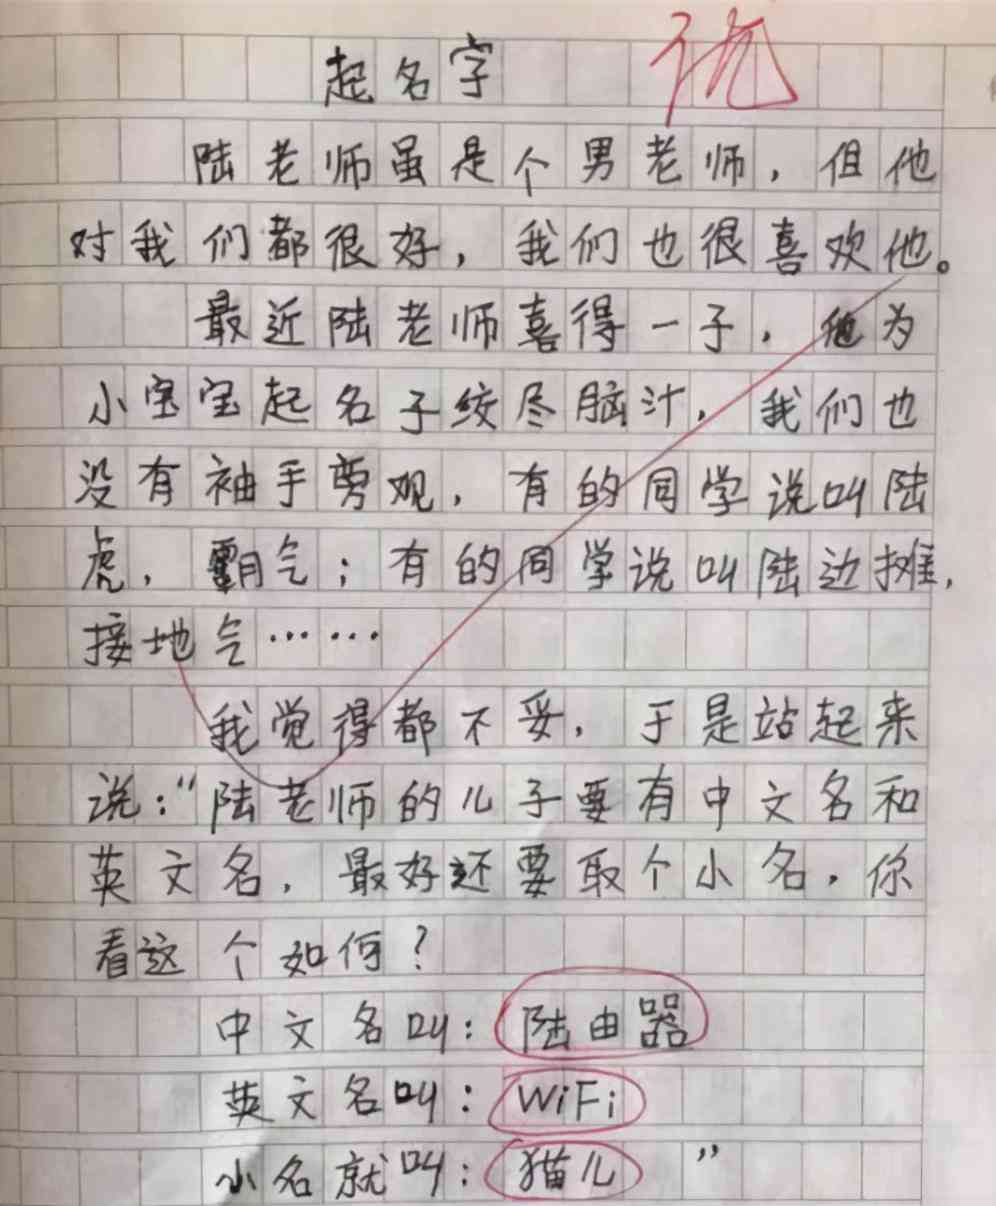 起名字 优
陆老师虽是个男老师，但他
对我们都很好，我们也很喜欢他。
最近陆老师喜得一子，他为
小宝宝起名子绞尽脑汁，我们也
没有袖手旁观，有的同学说叫陆
虎，霸气；有的同学说叫陆边摊，
接地气……
我觉得都不妥，于是站起来
说：“陆老师的儿子要有中文名和
英文名，最好还要取个小名，你
看这个如何？
中文名叫：陆由器
英文名叫：WiFi
小名就叫：猫儿 ”